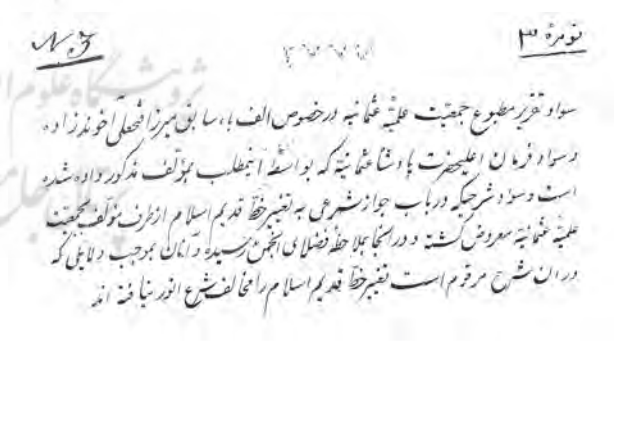 نومرهٔ ۳
N. 3
سواد تقریر مطبوع جمعیت علمیّهٔ عثمانیه در خصوص الف باء سابق میرزا فتحعلی آخوندزاده
و سواد فرمان اعلیحضرت پادشاه عثمانیّه که بواسطهٔ اینمطلب بمؤلّف مذکور داده شده
است و سواد شرحیکه در باب جواز شرعی به تغییر خطّ قدیم اسلام از طرف مؤلّف بجمعیّت
علمیّه عثمانیّه معروض گشته و در آنجا بملاحظهٔ فضلای انجمن رسیده و آنان بموجب دلایلی که
در ان شرح مرقوم است تغییر خطّ قدیم اسلام را مخالف شرع انور نیافته اند